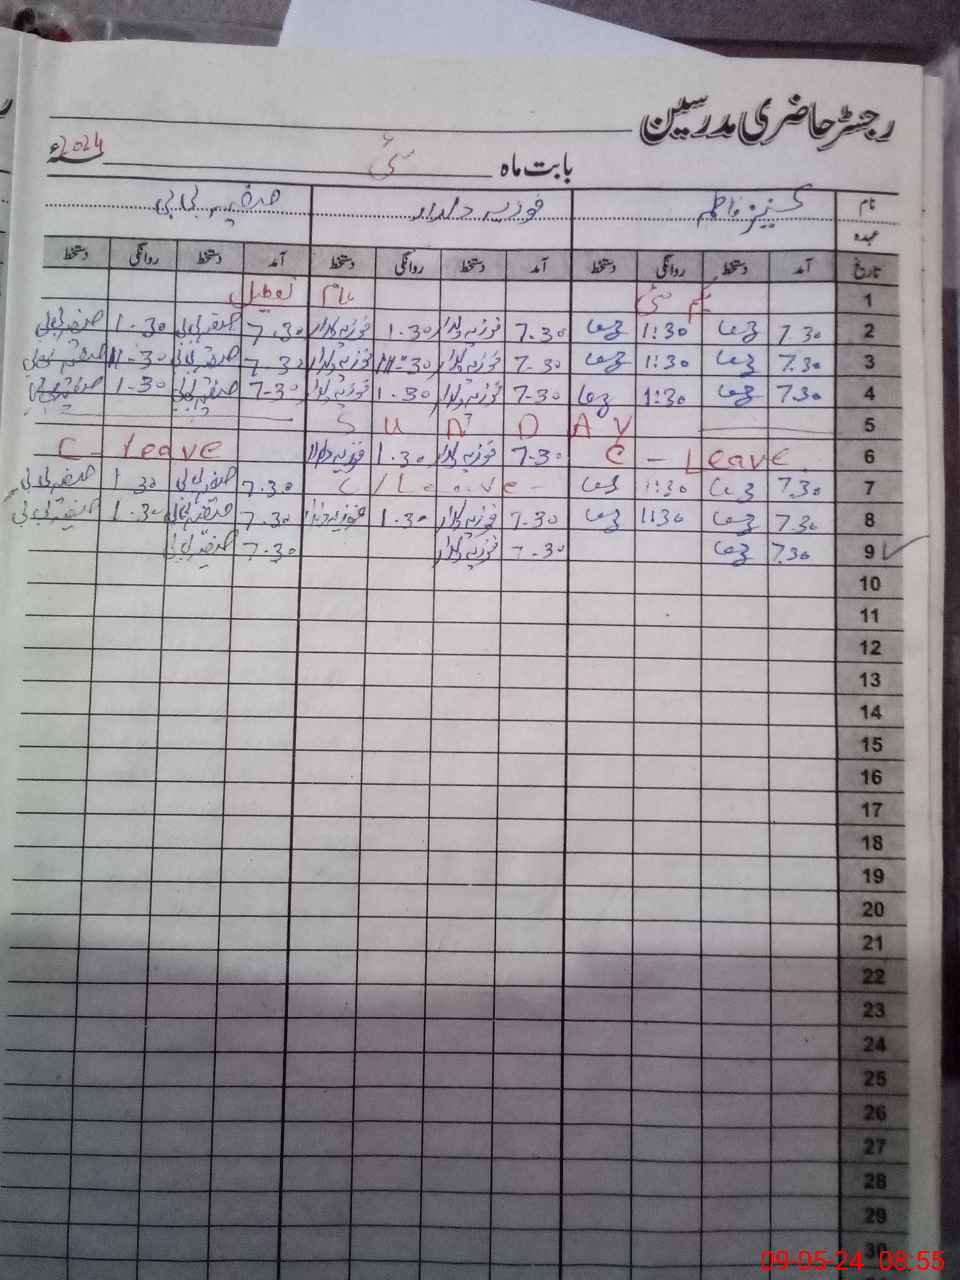 رجسٹر حاضری مدرسین
بابت ماہ مئی 2024 سنہء
نام کنیز فاطمہ فوزیہ دلدار صفیہ بی بی
عہدہ
تاریخ آمد دستخط روانگی دستخط آمد دستخط روانگی دستخط آمد دستخط روانگی دستخط
1 یکم مئی عام تعطیل
2 7.30 1:30 7.30 فوزیہ دلدار 1.30 فوزیہ دلدار 7.30 صفیہ بی بی 1.30 صفیہ بی بی
3 7.30 1:30 7-30 فوزیہ دلدار 11-30 فوزیہ دلدار 7-30 صفیہ بی بی 11-30 صفیہ بی بی
4 7.30 1:30 7-30 فوزیہ دلدار 1.30 فوزیہ دلدار 7-30 صفیہ بی بی 1-30 صفیہ بی بی
5 SUNDAY
6 C - Leave 7-30 فوزیہ دلدار 1.30 فوزیہ دلدار C - Leave
7 7.30 1:30 C/Leave - 7.30 صفیہ بی بی 1 30 صفیہ بی بی
8 7.30 1:30 7-30 فوزیہ دلدار 1.30 فوزیہ دلدار 7.30 صفیہ بی بی 1.30 صفیہ بی بی
9 7.30 7-30 فوزیہ دلدار 7.30 صفیہ بی بی
10
11
12
13
14
15
16
17
18
19
20
21
22
23
24
25
26
27
28
29
30
09-05-24 08:55